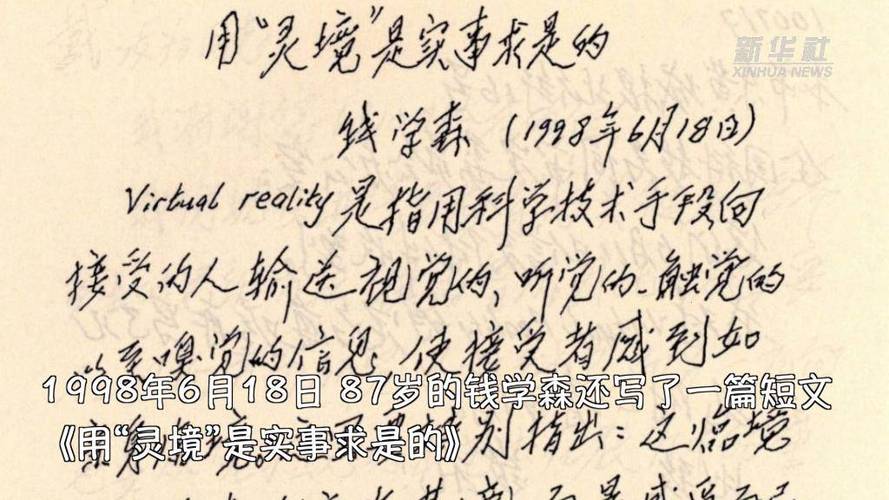 用“灵境”是实事求是的
新华社
XINHUA NEWS
钱学森（1998年6月18日）
Virtual reality是指用科学技术手段向
接受的人输送视觉的、听觉的、触觉的
以至嗅觉的信息，使接受者感到如
1998年6月18日 87岁的钱学森还写了一篇短文
《用“灵境”是实事求是的》
别指出：这临境